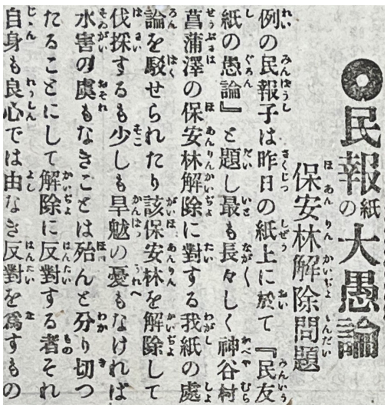 ◎民報紙の大愚論
保安林解除問題
例の民報子は昨日の紙上に於て『民友
紙の愚論』と題し最も長々しく神谷村
菖蒲澤の保安林解除に對する我紙の處
論を駁せられたり該保安林を解除して
伐採するも少しも旱魃の憂もなければ
水害の虞もなきことは殆んと分り切つ
たることにして解除に反對する者それ
自身も良心では由なき反對を爲すもの